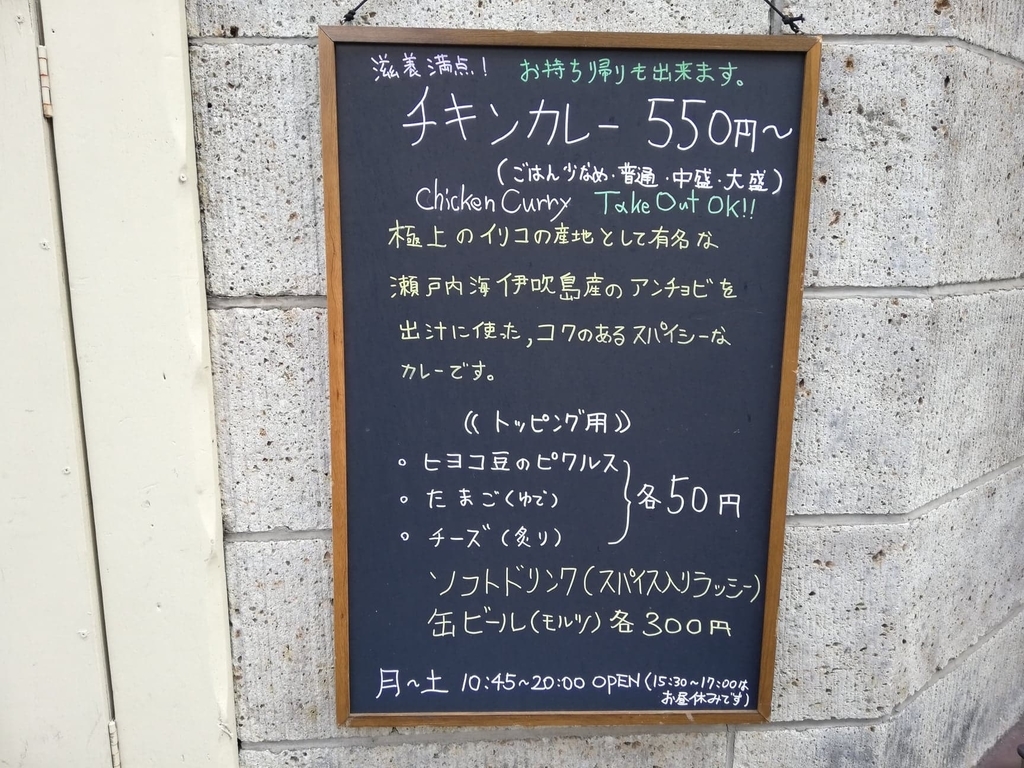 滋養満点! お持ち帰りも出来ます。
チキンカレー 550円~
(ごはん少なめ・普通・中盛・大盛)
Chicken Curry Take Out OK!!
極上のイリコの産地として有名な
瀬戸内海伊吹島産のアンチョビを
出汁に使った,コクのあるスパイシーな
カレーです。
(( トッピング用 ))
○ ヒヨコ豆のピクルス
○ たまご(ゆで)
各50円
○ チーズ(炙り)
ソフトドリンク(スパイス入りラッシー)
缶ビール(モルツ) 各300円
月~土 10:45~20:00 OPEN (15:30~17:00は
お昼休みです)